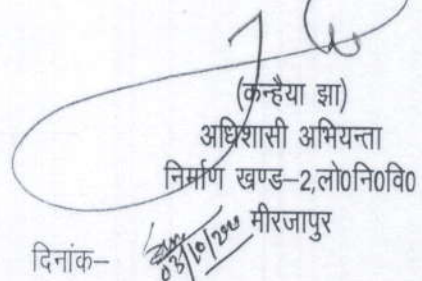 (कन्हैया झा)
अधिशासी अभियन्ता
निर्माण खण्ड-2,लो0नि0वि0
मीरजापुर
दिनांक-